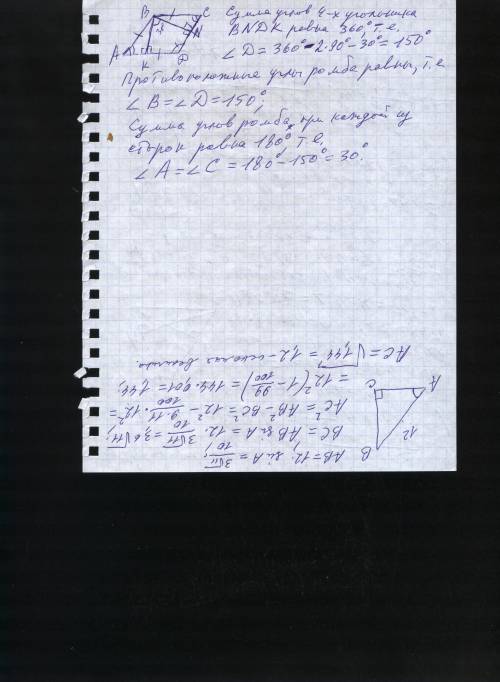 B C
A K D N
Сумма углов 4-х угольника
BNDK равна 360°, т.е.
∠D = 360° - 2·90° - 30° = 150°
Противоположные углы ромба равны, т.е
∠B = ∠D = 150°;
Сумма углов ромба при каждой из
сторон равна 180° т.е,
∠A = ∠C = 180° - 150° = 30°.
B A C 12
AB = 12; sin A = 3√11/10;
BC = AB sin A = 12 · 3√11/10 = 3,6√11;
AC² = AB² - BC² = 12² - 9·11/100 · 12² =
= 12² (1 - 99/100) = 144 · 0,01 = 1,44;
AC = √1,44 = 1,2 - искомая величина.